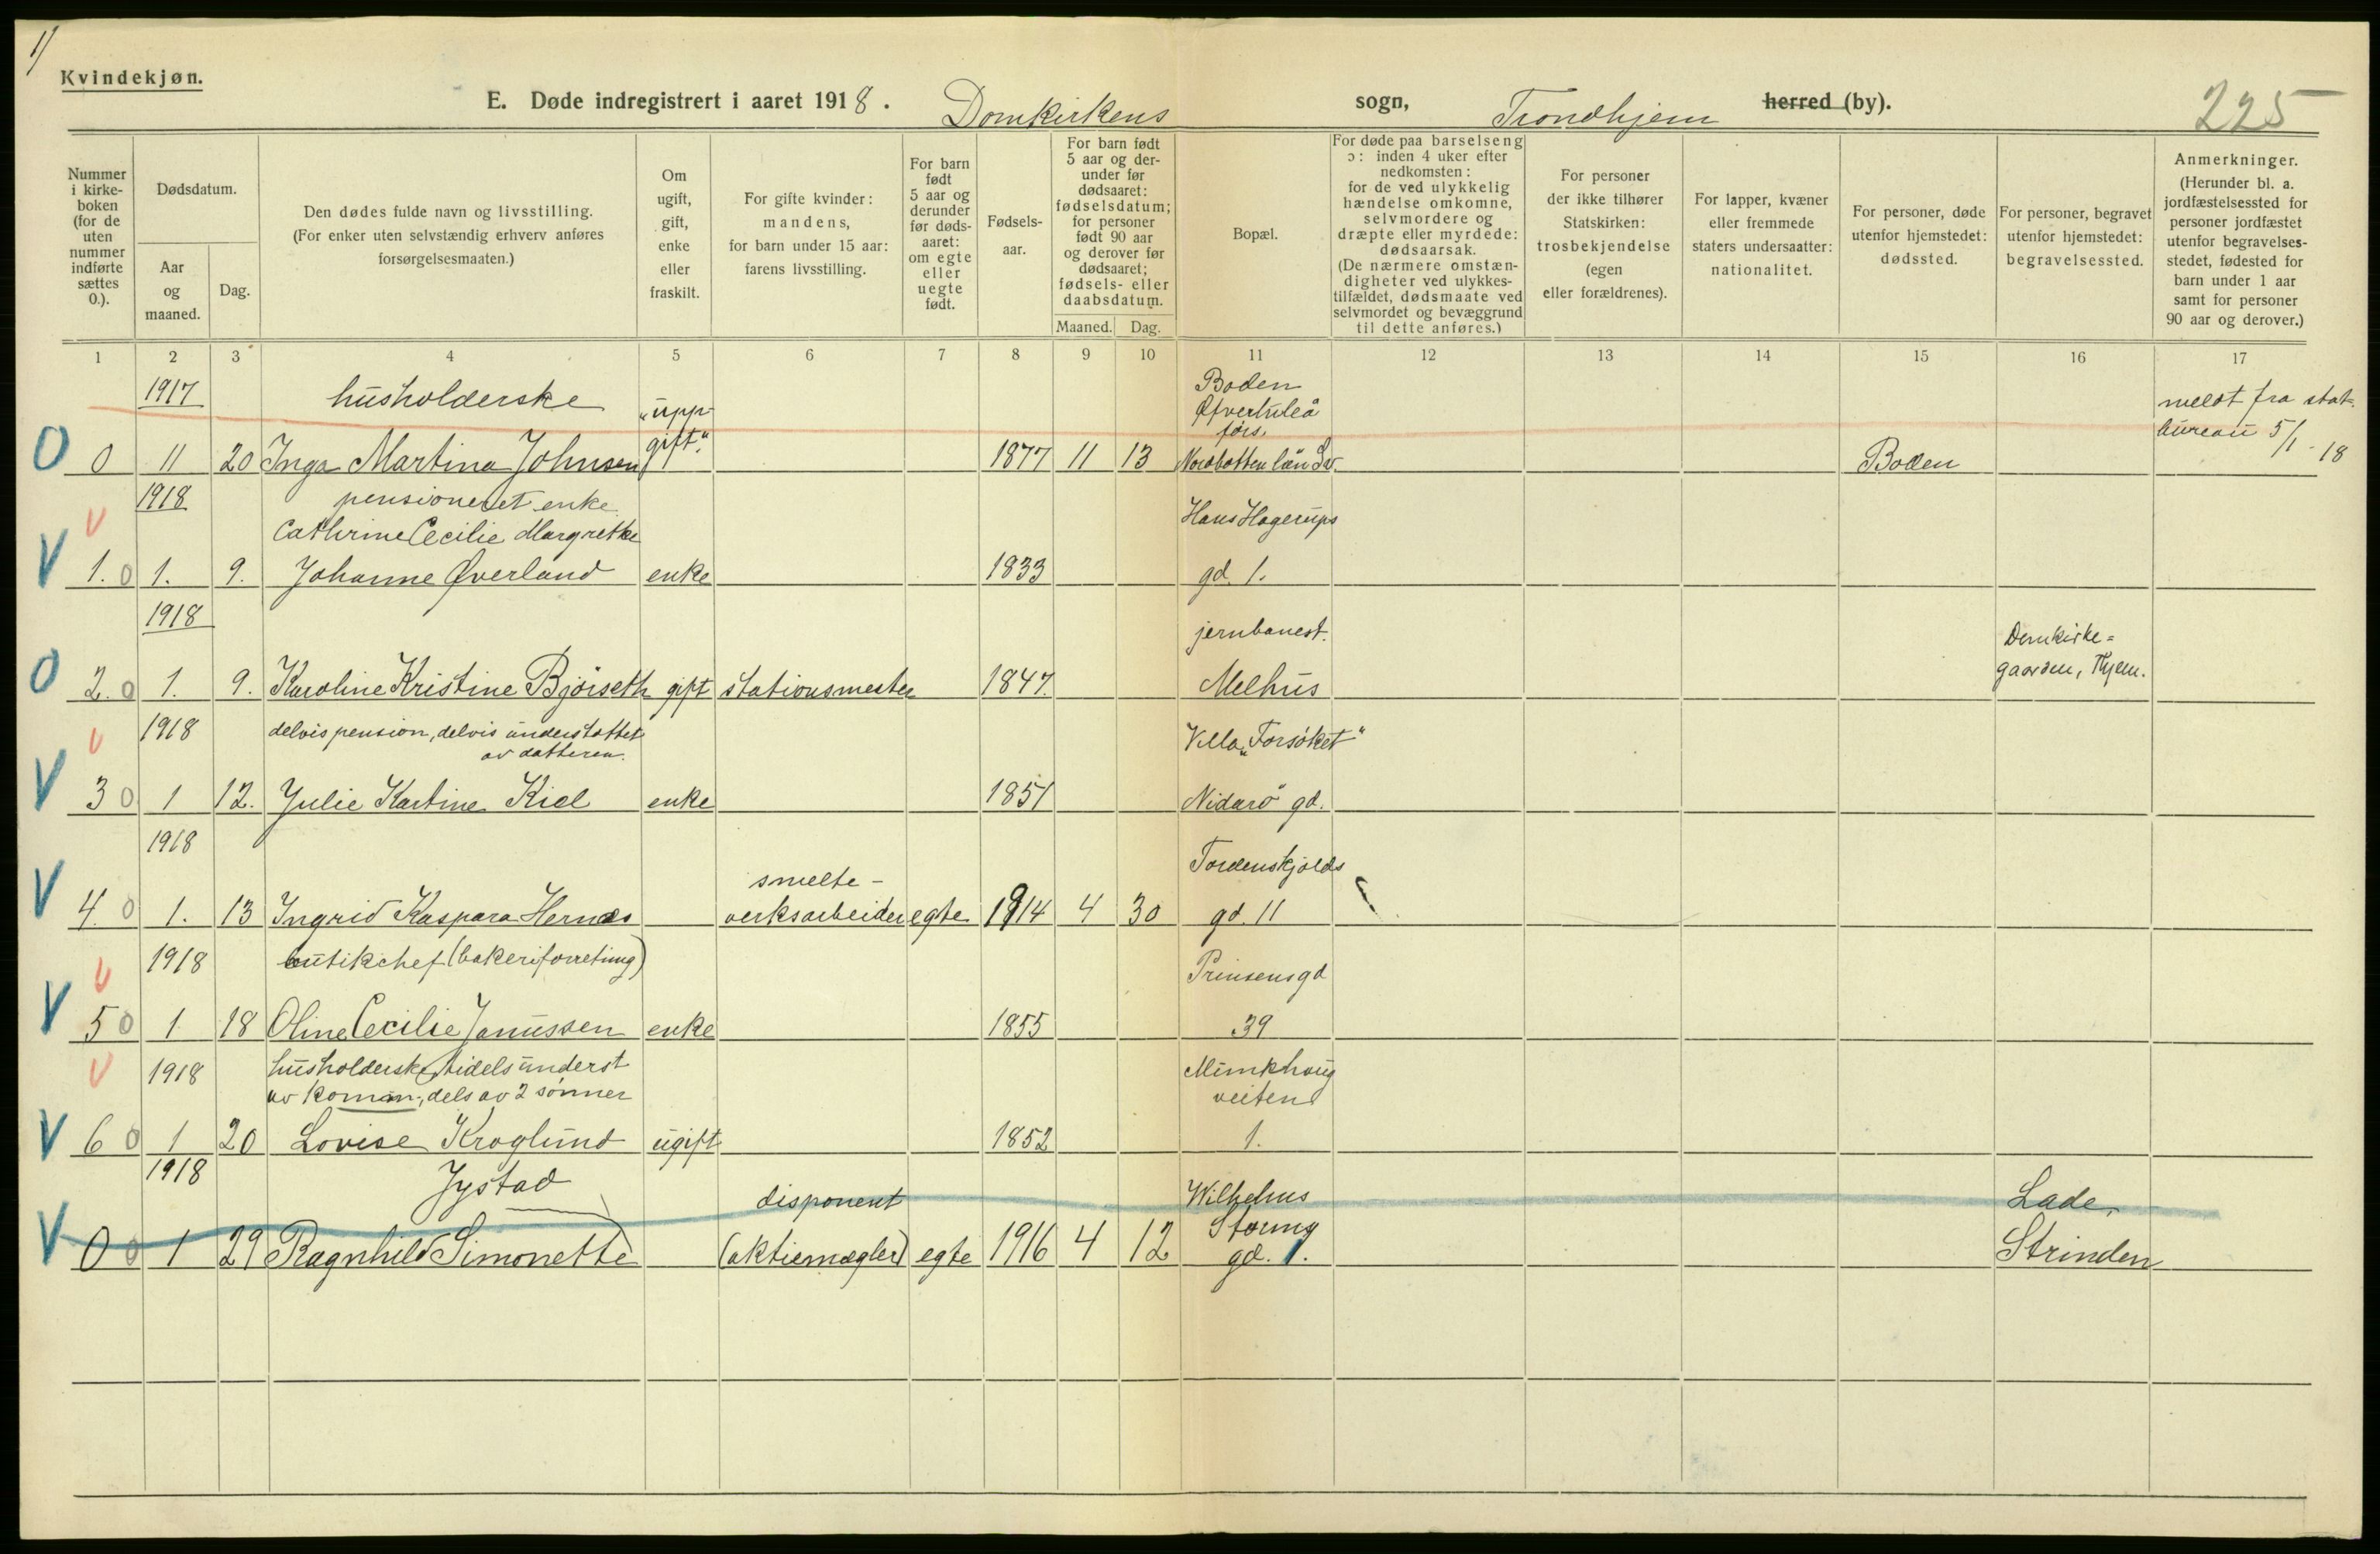 1)
Kvindekjøn.
E. Døde indregistrert i aaret 1918. Domkirkens sogn, Trondhjem herred (by).
225
Nummer i kirke-boken (for de uten nummer indførte sættes 0.).
Dødsdatum.
Aar og maaned.
Dag.
Den dødes fulde navn og livsstilling.
(For enker uten selvstændig erhverv anføres forsørgelsesmaaten.)
Om ugift, gift, enke eller fraskilt.
For gifte kvinder: mandens, for barn under 15 aar: farens livsstilling.
For barn født 5 aar og derunder før døds-aaret: om egte eller uegte født.
Fødsels-aar.
For barn født 5 aar og der-under før dødsaaret: fødselsdatum; for personer født 90 aar og derover før dødsaaret; fødsels- eller daabsdatum.
Maaned.
Dag.
Bopæl.
For døde paa barselseng ɔ: inden 4 uker efter nedkomsten: for de ved ulykkelig hændelse omkomne, selvmordere og dræpte eller myrdede: dødsaarsak.
(De nærmere omstæn-digheter ved ulykkes-tilfældet, dødsmaate ved selvmordet og bevæggrund til dette anføres.)
For personer der ikke tilhører Statskirken: trosbekjendelse (egen eller forældrenes).
For lapper, kvæner eller fremmede staters undersaatter: nationalitet.
For personer, døde utenfor hjemstedet: dødssted.
For personer, begravet utenfor hjemstedet: begravelsessted.
Anmerkninger.
(Herunder bl. a. jordfæstelsessted for personer jordfæstet utenfor begravelses-stedet, fødested for barn under 1 aar samt for personer 90 aar og derover.)
1 2 3 4 5 6 7 8 9 10 11 12 13 14 15 16 17
1917 husholderske "upp- Boden meldt fra stat.
Øfverluleå bureau 5/1-18
förs.
O 0 11 20 Inga Martina Johnsen gift". 1877 11 13 Norrbotten län Sv. Boden
1918 pensioneret enke Hans Hagerups
V Cathrine Cecilie Margrethe
V 1. 0 1. 9. Johanne Øverland enke 1833 gd. 1.
1918 jernbanest. Domkirke=
O 2. 0 1. 9. Karoline Kristine Bjöiseth gift stationsmester 1847. Melhus gaarden, Thjem.
V 1918 delvis pension, delvis understøttet Villa "Forsöket"
av datteren.
V 3 0 1 12. Julie Kartine Kiel enke 1851 Nidarö gd.
1918 smelte- Tordenskjolds
V 4. 0 1. 13 Ingrid Kaspara Hernæs verksarbeider egte 1914 4 30 gd. 11
V 1918 butikchef (bakeriforretning) Prinsensgd
V 5 0 1 18 Oline Cecilie Janussen enke 1855 39
V 1918 husholderske, tidels underst Munkhaug
av komm-, dels av 2 sønner veiten
V 6 0 1 20 Lovise Kroglund ugift 1852 1.
1918 Jystad disponent Wilhelms Lade,
Storms
V 0 0 1 29 Ragnhild Simonette (aktiemægler) egte 1916 4 12 gd. 1. Strinden